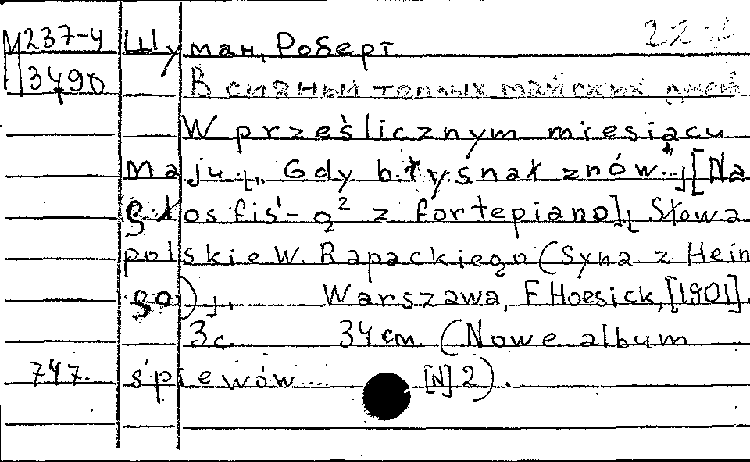 М 237-4 Шуман, Роберт
3490 В сияньи теплых майских дней
W prześlicznym miesiącu
maju.., Gdy błysnął znów.."., [Na
głos fis'-g² z fortepiano]. Słowa
polskie W. Rapackiego (Syna z Hein
go).,. Warszawa, F. Hoesick, [1901].
3с. 34 cm. (Nowe album
747. śpiewów [N] 2).